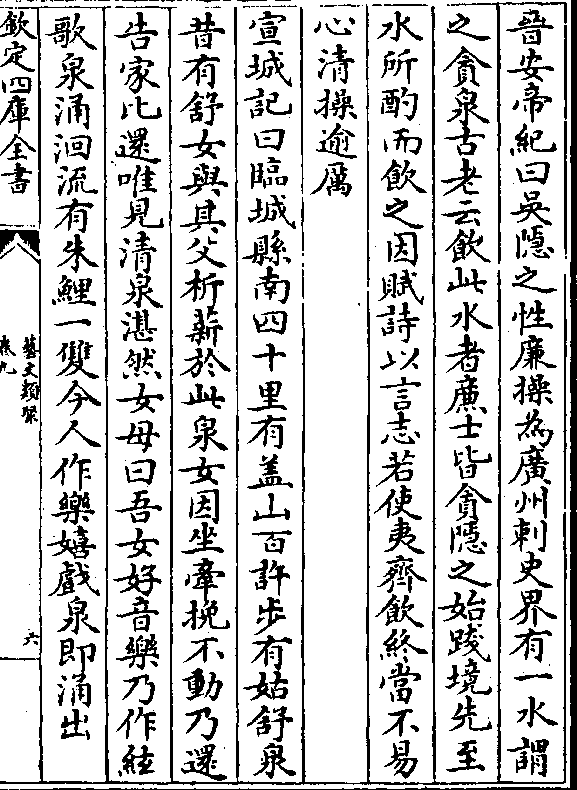 晉安帝紀曰吳隱之性廉操為廣州刺史界有一水謂
之貪泉古老云飲此水者廉士皆貪隱之始踐境先至
水所酌而飲之因賦詩以言志若使夷齊飲終當不易
心清操逾厲
宣城記曰臨城縣南四十里有盖山百許步有姑舒泉
昔有舒女與其父析薪於此泉女因坐牽挽不動乃還
告家比還唯見清泉湛然女母曰吾女好音樂乃作絃
歌泉涌洄流有朱鯉一雙今人作樂嬉戲泉即涌出
欽定四庫全書
藝文類聚
卷九
六